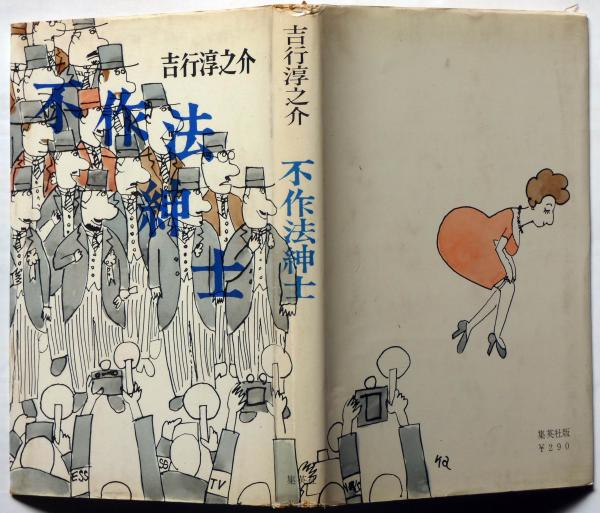 吉行淳之介
不作法紳士
吉行淳之介
不作法紳士
集英
集英社版
￥290
ESS
TV